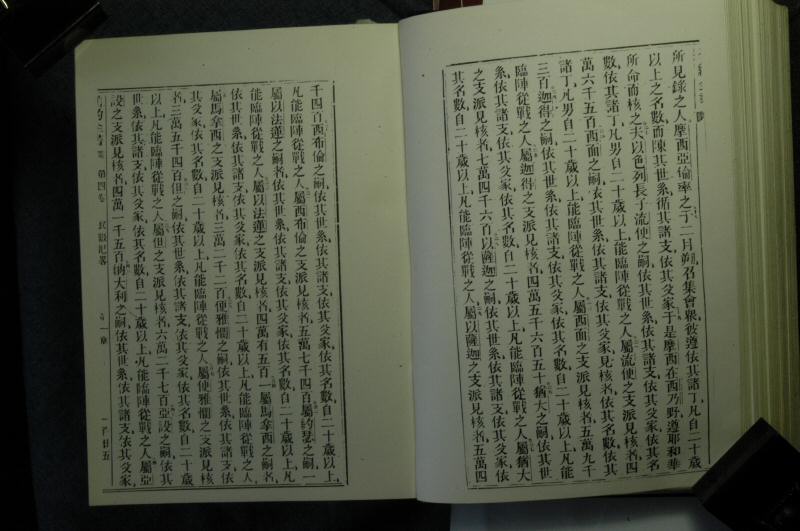 所見錄之人摩西亞倫率之于二月朔召集會眾彼遵依其諸丁凡自二十歲
以上之名數而陳其世系循其諸支依其爻家于是摩西在西乃野遵耶和華
所命而核之夫以色列長子流便之嗣依其世系依其諸支依其爻家依其名
數依其諸丁凡男自二十歲以上凡能臨陣從戰之人屬流便之支派見核者四
萬六千五百西面之嗣依其世系依其諸支依其爻家見核者依其名數依其
諸丁凡男自二十歲以上凡能臨陣從戰之人屬西面之支派見核者五萬九千
三百迦得之嗣依其世系依其諸支依其爻家依其名數自二十歲以上凡能
臨陣從戰之人屬迦得之支派見核者四萬五千六百五十猶大之嗣依其世
系依其諸支依其爻家依其名數自二十歲以上凡能臨陣從戰之人屬猶大
之支派見核者七萬四千六百以薩迦之嗣依其世系依其諸支依其爻家依
其名數自二十歲以上凡能臨陣從戰之人屬以薩迦之支派見核者五萬四
千四百西布倫之嗣依其世系依其諸支依其爻家依其名數自二十歲以上
凡能臨陣從戰之人屬西布倫之支派見核者五萬七千四百屬約瑟之嗣一
屬以法蓮之嗣者依其世系依其諸支依其爻家依其名數自二十歲以上凡
能臨陣從戰之人屬以法蓮之支派見核者四萬有五百一屬馬拿西之嗣者
依其世系依其諸支依其爻家依其名數自二十歲以上凡能臨陣從戰之人
屬馬拿西之支派見核者三萬二千二百便雅憫之嗣依其世系依其諸支依
其爻家依其名數自二十歲以上凡能臨陣從戰之人屬便雅憫之支派見核
者三萬五千四百但之嗣依其世系依其諸支依其爻家依其名數自二十歲
以上凡能臨陣從戰之人屬但之支派見核者六萬二千七百亞設之嗣依其
世系依其諸支依其爻家依其名數自二十歲以上凡能臨陣從戰之人屬亞
設之支派見核者四萬一千五百納大利之嗣依其世系依其諸支依其爻家
第四卷 民數紀畧 一章